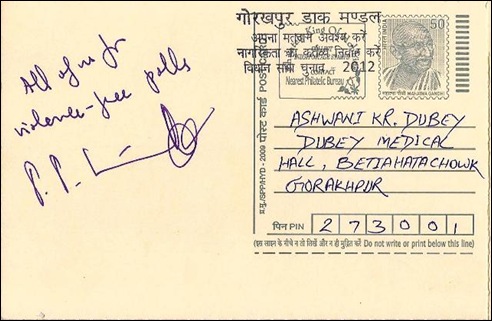 All of us for
violence-free polls
P. P.
गोरखपुर डाक मण्डल
अपना मतदान अवश्य करें
नागरिकता का कर्तव्य निर्वाह करें
विधान सभा चुनाव 2012
King Of
CONTACT
Nearest Philatelic Bureau
50
भारत INDIA
महात्मा गांधी MAHATMA GANDHI
पोस्ट कार्ड POST CARD
2009
ASHWANI KR. DUBEY
DUBEY MEDICAL
HALL, BETIAHATACHOWK
GORAKHPUR
पिन PIN 273001
(इस लाइन के नीचे न तो लिखें और न ही मुद्रित करें Do not write or print below this line)